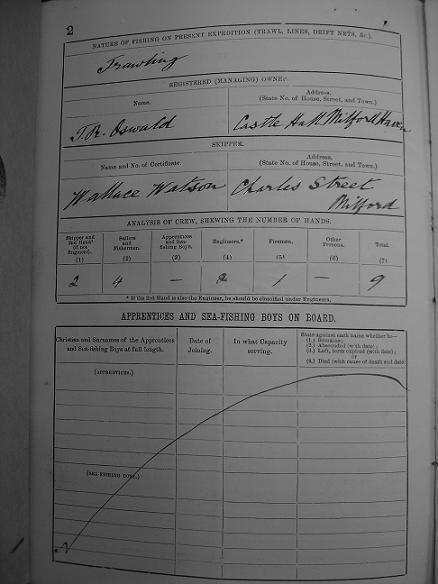 2
NATURE OF FISHING ON PRESENT EXPEDITION (TRAWL, LINES, DRIFT NETS, &c.).
Trawling
REGISTERED (MANAGING) OWNER.
Name.
Address.
(State No. of House, Street, and Town.)
T.R. Oswald
Castle Hall Milford Haven
SKIPPER.
Name and No. of Certificate.
Address.
(State No. of House, Street, and Town.)
Wallace Watson
Charles Street
Milford
ANALYSIS OF CREW, SHEWING THE NUMBER OF HANDS.
Skipper and 2nd Hand* (if not Engineer).
Sailors and Fishermen.
Apprentices and Sea-fishing Boys.
Engineers.*
Firemen.
Other Persons.
Total.
(1) (2) (3) (4) (5) (6) (7)
2 4 — 2 1 — 9
* If the 2nd Hand is also the Engineer, he should be classified under Engineers.
APPRENTICES AND SEA-FISHING BOYS ON BOARD.
Christian and Surnames of the Apprentices and Sea-fishing Boys at full length.
Date of Joining.
In what Capacity serving.
State against each name whether he—
(1.) Remains;
(2.) Absconded (with date);
(3.) Left, term expired (with date);
or
(4.) Died (with cause of death and date
(APPRENTICES.)
(SEA-FISHING BOYS.)